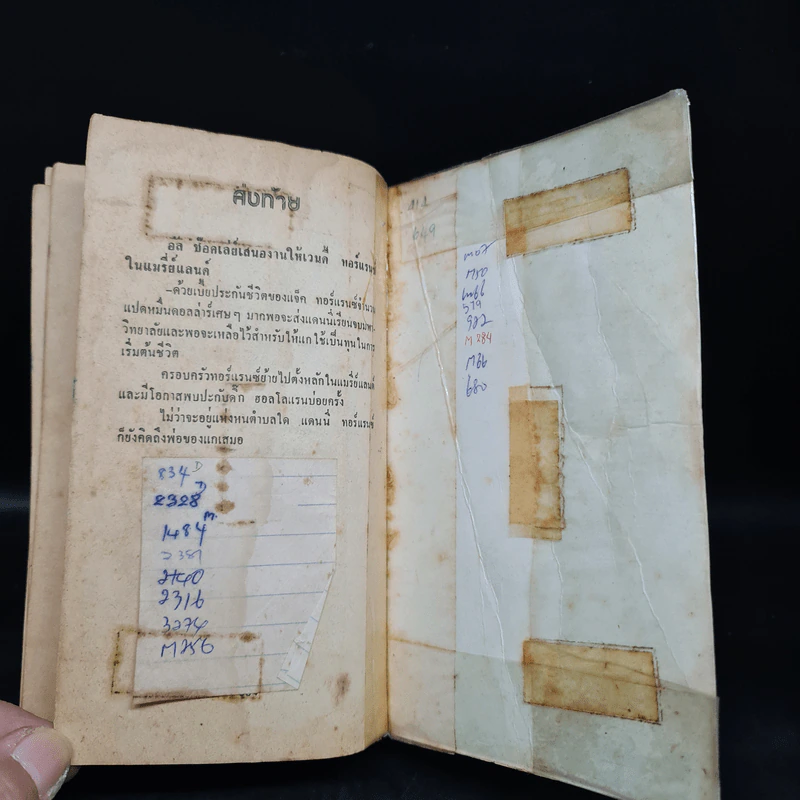 ส่งท้าย
อัล ช็อคเลย์เสนองานให้เวนดี้ ทอร์แรนซ์
ในแมรี่ย์แลนด์
–ด้วยเบี้ยประกันชีวิตของแจ็ค ทอร์แรนซ์จำนวน
แปดหมื่นดอลล่าร์เศษๆ มากพอจะส่งแดนนี่เรียนจบมหา
วิทยาลัยและพอจะเหลือไว้สำหรับให้แกใช้เป็นทุนในการ
เริ่มต้นชีวิต
ครอบครัวทอร์แรนซ์ย้ายไปตั้งหลักในแมรี่ย์แลนด์
และมีโอกาสพบปะกับดิ๊ก ฮอลโลแรนบ่อยครั้ง
ไม่ว่าจะอยู่แห่งหนตำบลใด แดนนี่ ทอร์แรนซ์
ก็ยังคิดถึงพ่อของแกเสมอ
834 D
2328 D
1484 M.
2381
2440
2316
3274
M256
649
M50
579
922
M 284
M36
680